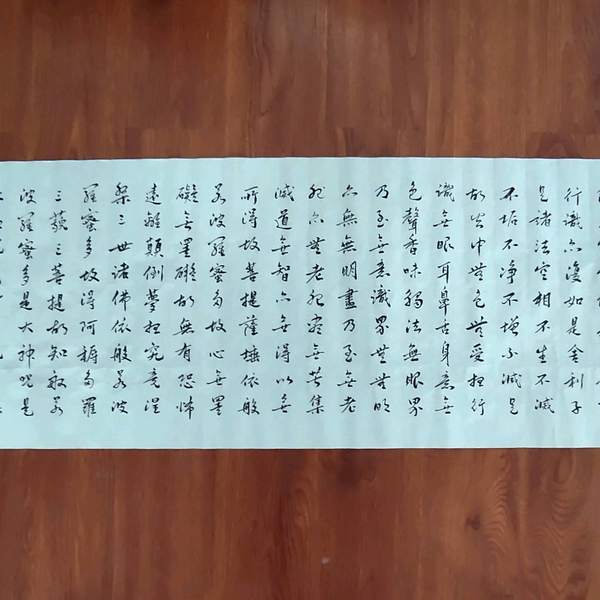 行識亦復如是舍利子
是諸法空相不生不滅
不垢不淨不增不減是
故空中無色無受想行
識無眼耳鼻舌身意無
色聲香味觸法無眼界
乃至無意識界無無明
亦無無明盡乃至無老
死亦無老死盡無苦集
滅道無智亦無得以無
所得故菩提薩埵依般
若波羅蜜多故心無罣
礙無罣礙故無有恐怖
遠離顛倒夢想究竟涅
槃三世諸佛依般若波
羅蜜多故得阿耨多羅
三藐三菩提故知般若
波羅蜜多是大神咒是